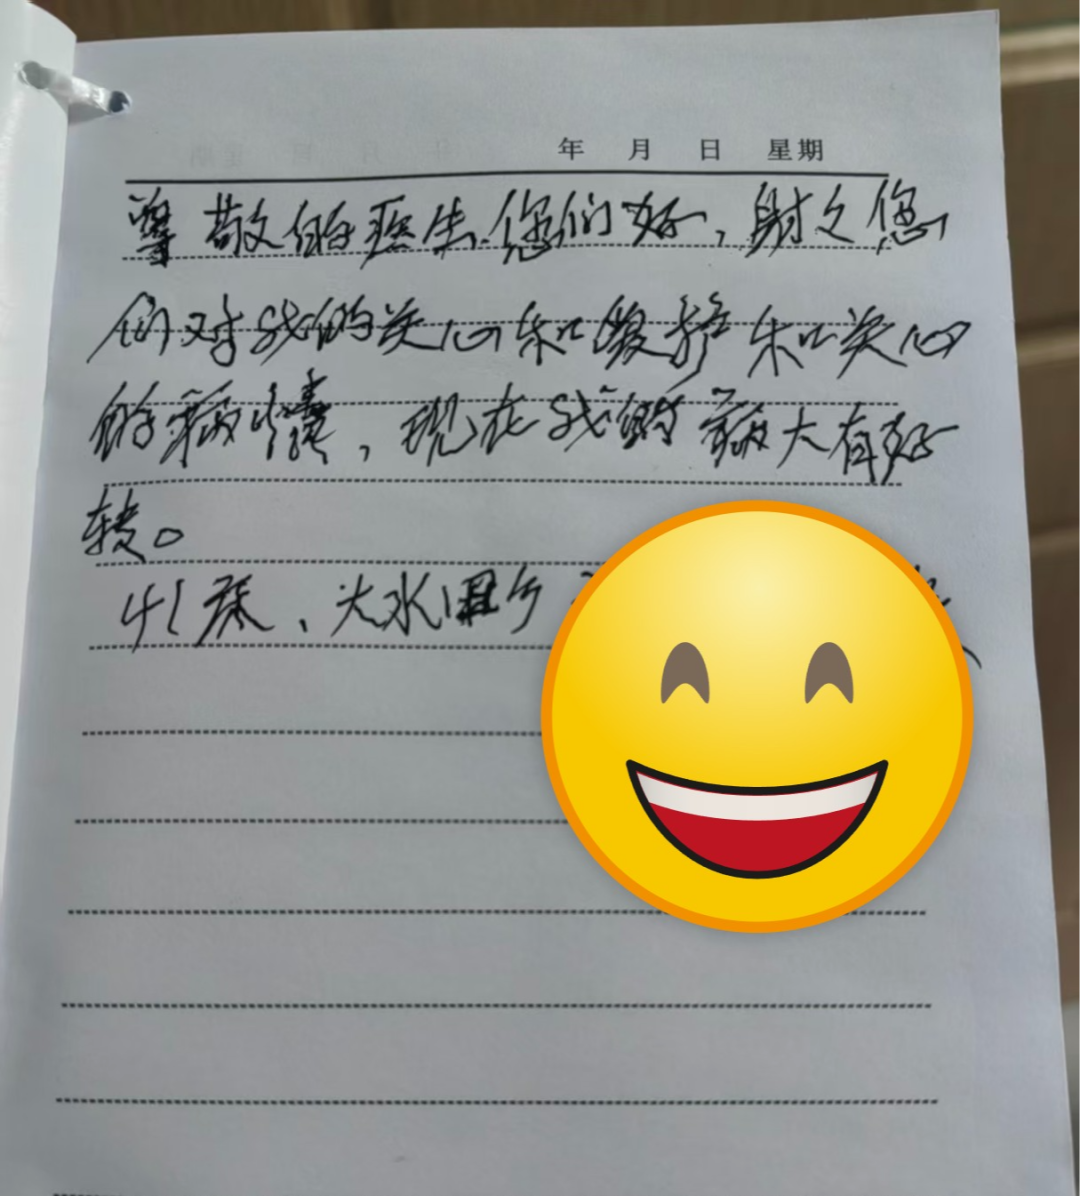 年 月 日 星期
尊敬的医生.您们好,射久您
们对我的关心和爱护和关心
的病情,现在我的病大有好
转。
大水